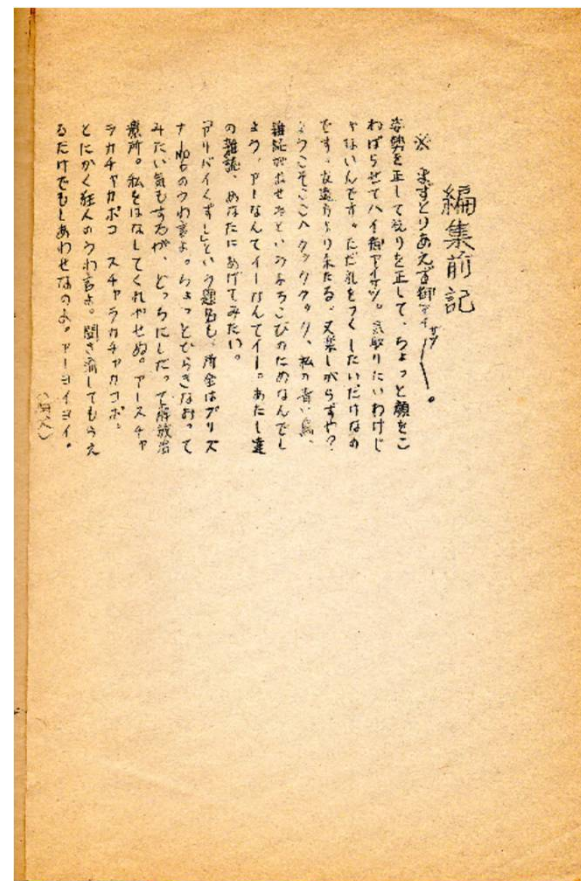 編集前記
※ まずとりあえず御アイサツ——。
姿勢を正して襟りを正して、ちょっと顔をこ
わばらせてハイ御アイサツ。気取りたいわけじ
ゃないんです。ただ礼をつくしたいだけなの
です。友遠方より来たる。又楽しからずや?
ようこそここへクックックック、私の青い鳥、
雑誌が出せたというよろこびのためなんでし
ょう、アーなんてイーなんてイー。あたし達
の雑誌、あなたにあげてみたい。
「アリバイくずし」という題名も、
のうわ言よ。ちょっとひらきなおって
みたい気もするが、どっちにしたって解放治
療所。私をはなしてくれやせぬ。アースチャ
ラカチャカポコ スチャラカチャカポコ。
とにかく狂人のうわ言よ。聞き流してもらえ
るだけでもしあわせなのよ。アーヨイヨイ。